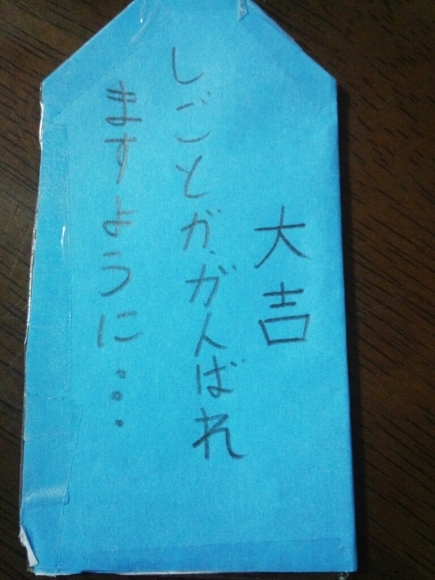 大吉
しごとが、がんばれ
ますように・・・